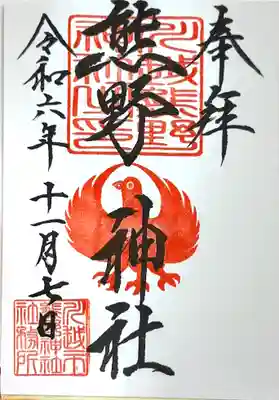 奉拝
熊野神社
令和六年十一月七日
川越市
熊野神社
社務所